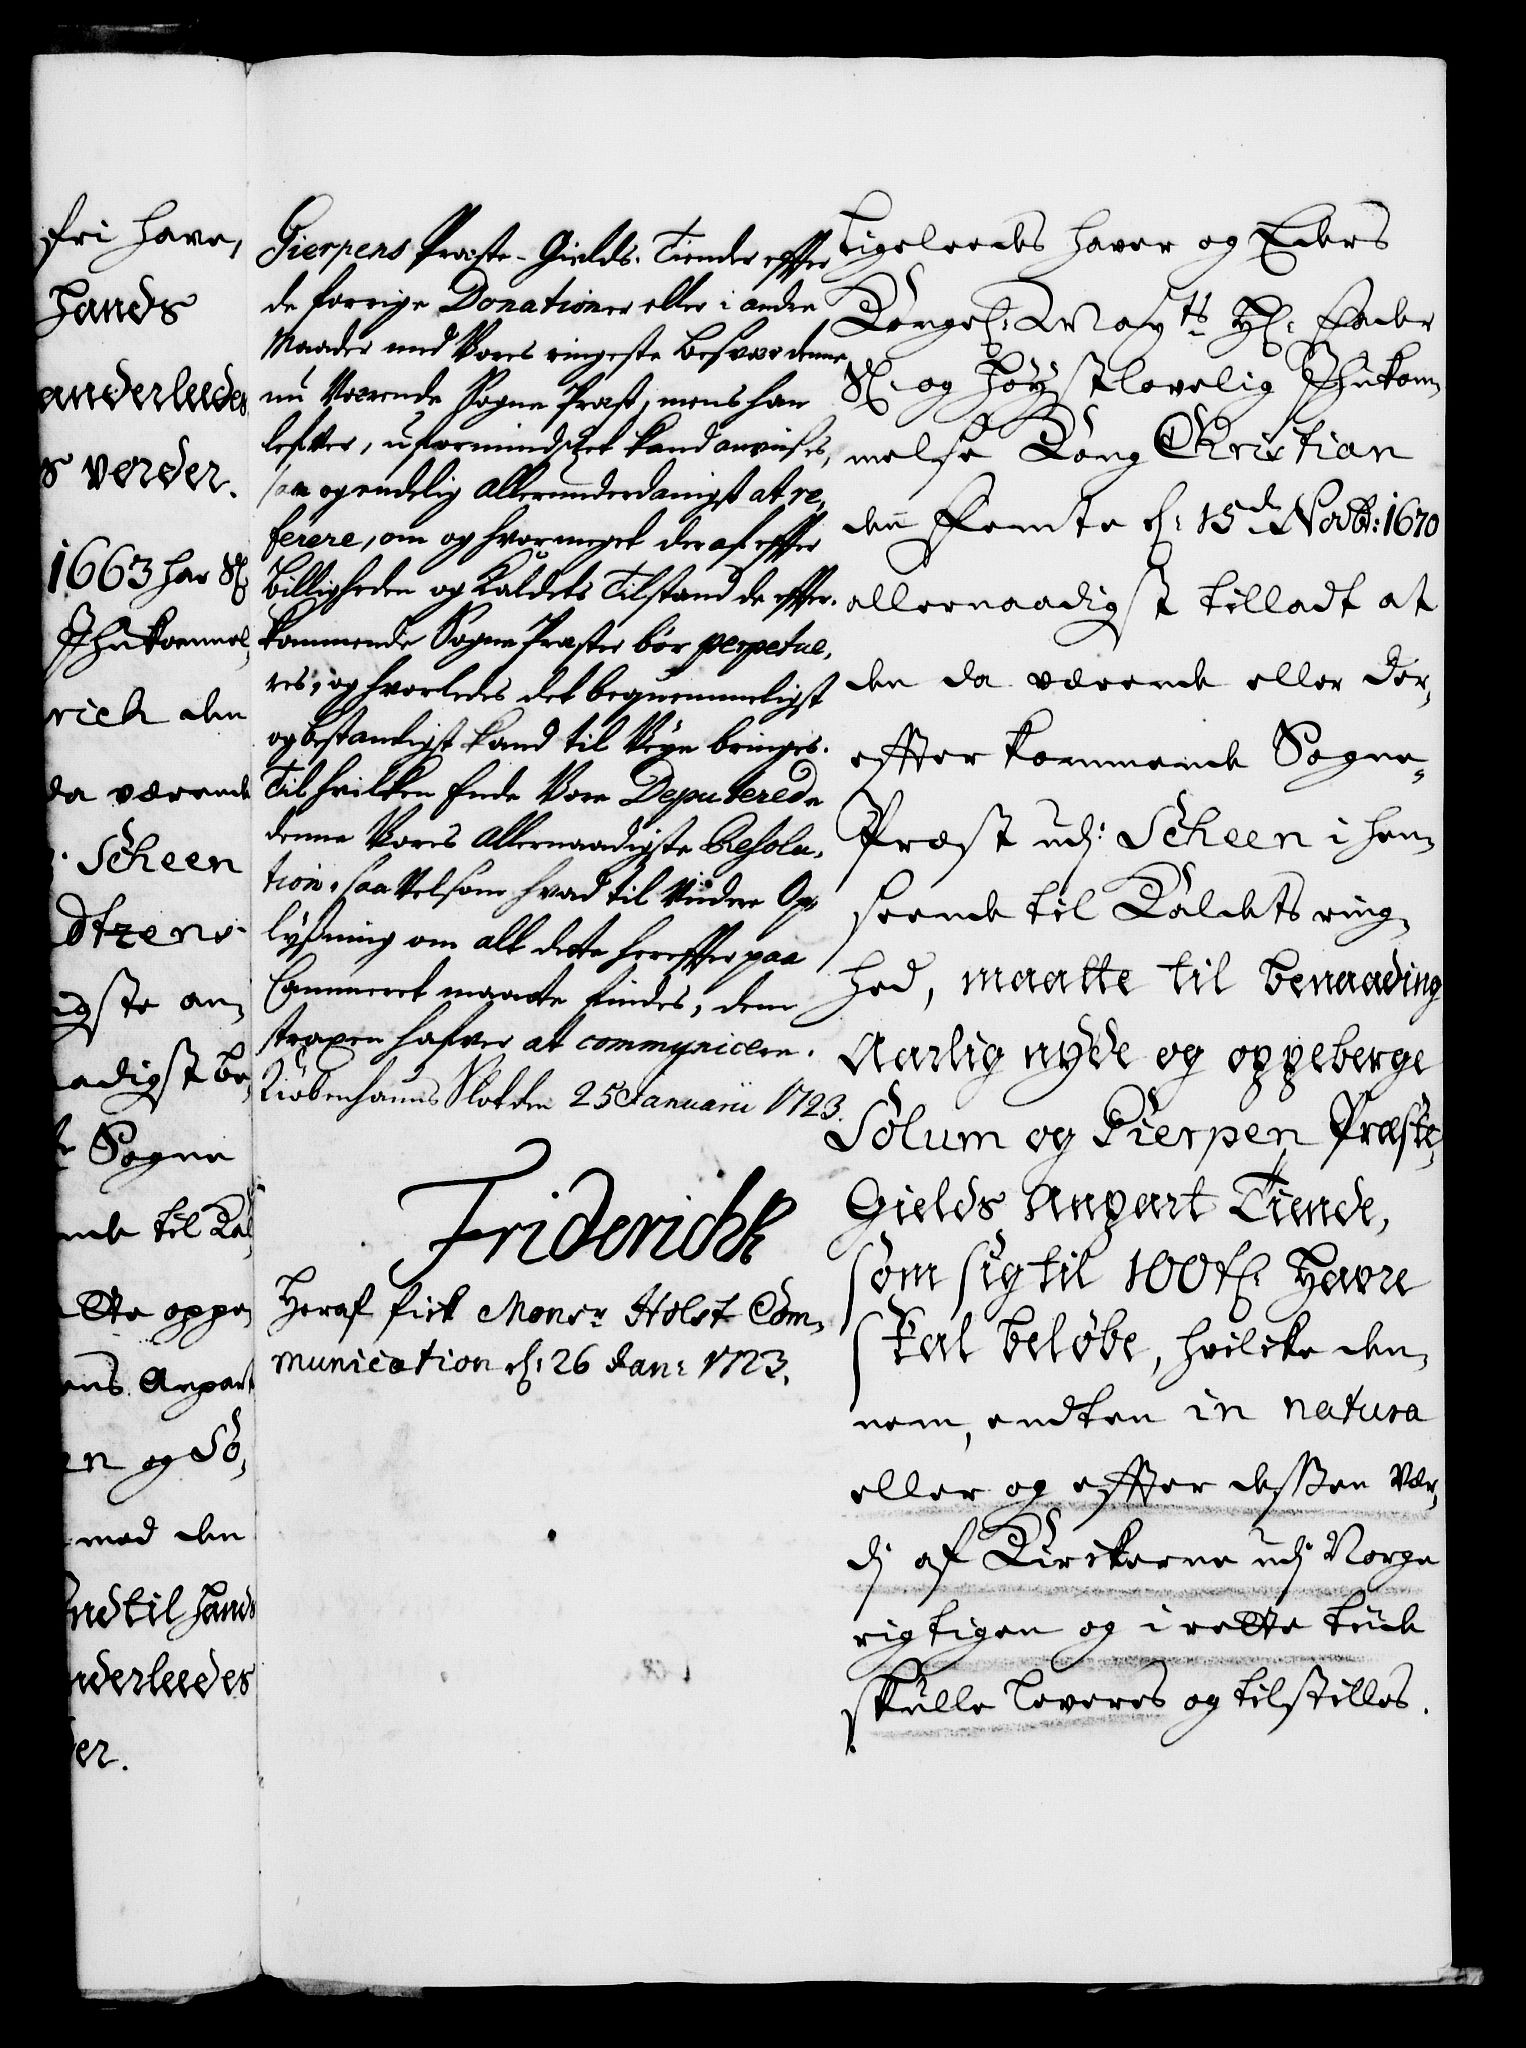 fri have,
hands
anderleedes
s vorder.
1663 har Sl
Ihukommel,
rich den
da værende
Scheen
dtzens
igste an,
aadigst be,
Sogne
nde til Kal,
tte oppe,
ens Anpart
en og So,
med den
indtil hands
nderleedes
er.
Gierpens Præste-Gields Tiender effter
de forrige Donationer eller i andre
Maader med Vores ringeste Besvær denne
nu Værende Sogne Præst, mens han
lefver, uformindsket kand anvises,
saa og endelig allerunderdanigst at re,
ferere, om og hvormeget deraf effter
Billigheden og Kaldets Tilstand de effter,
kommende Sogne Præster bør perpetue,
res, og hvorledes det beqvemmeligst
og bestandigst kand til Veye bringes.
Til hvilken Ende Vore Deputerede
denne Vores allernaadigste Resolu,
tion, saa velsom hvad til Viidere Op,
lysning om alt dette hereffter paa
Cammeret maatte findes, dem
straxen hafver at communicere.
Kiøbenhauns Slot den 25 Januarii 1723.
Friderich R
Heraf fick Monsr Holst Com,
munication d: 26 Jan: 1723.
Ligeleedes haver og Eders
Kongel: Mayts Hl: Fader
Sl: og Høystlovelig Ihukom,
melse Kong Christian
den Femte d: 15d Novbr: 1670
allernaadigst tilladt at
den da værende eller der,
effter kommende Sogne,
Præst udj Scheen i hen,
seende til Kaldets ring,
hed, maatte til benaading
Aarlig nyde og oppeberge
Solum og Gierpen Præste,
Gields Anpart Tiende,
som sig til 100 tr: Havre
skal beløbe, hvilcke den,
nem, endten in natura
eller og effter dessen Vær,
dj af Kirckerne udj Norge
rigtigen og i rette tiide
skulle leveres og tilstilles.